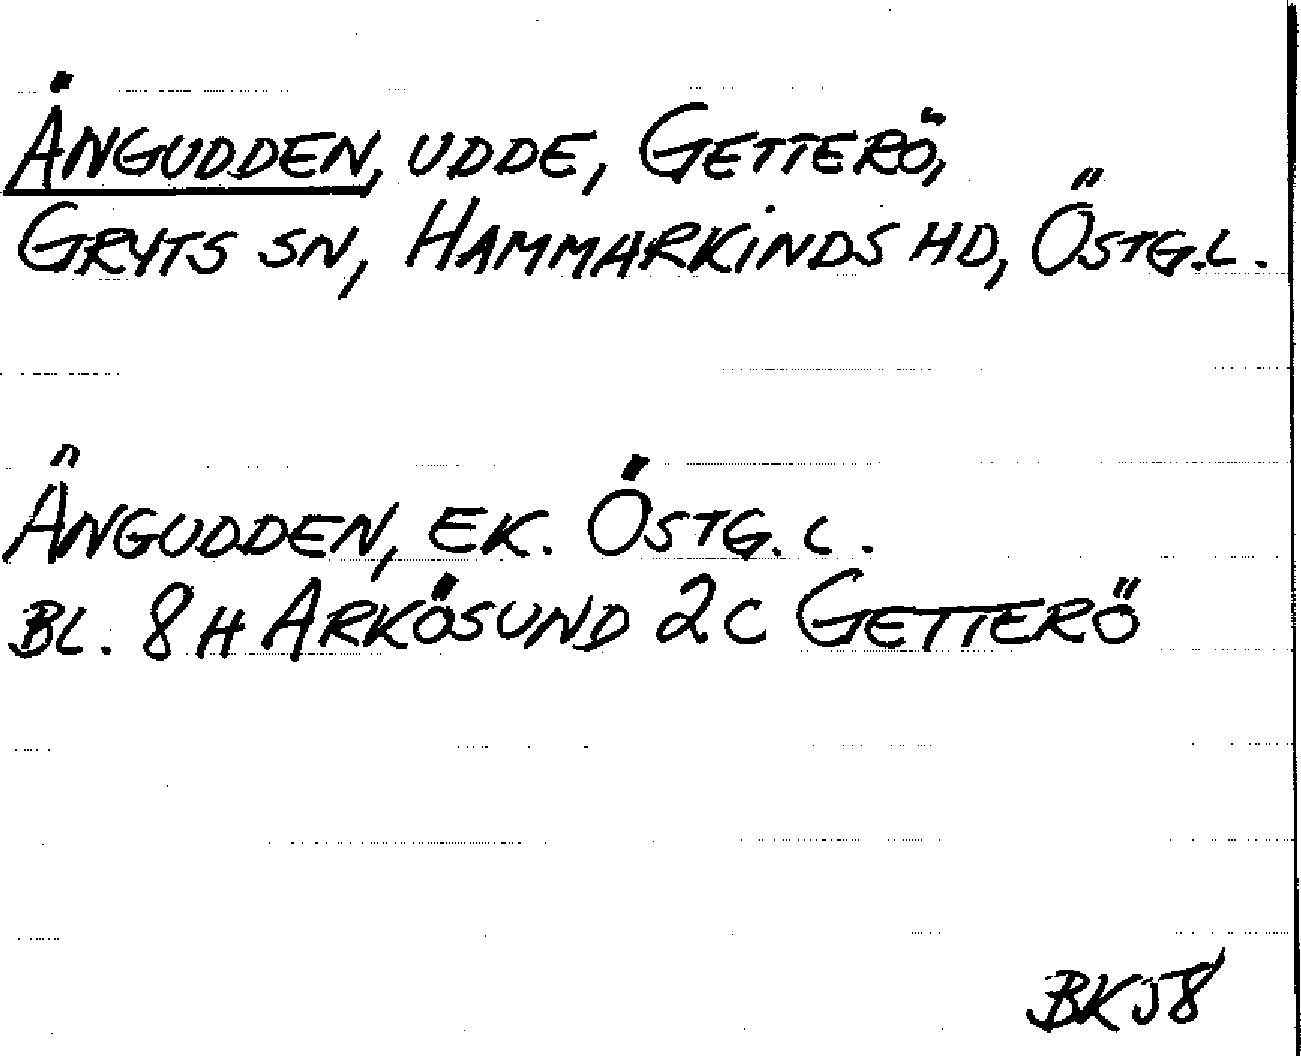 ÄNGUDDEN, UDDE, GETTERÖ,
GRYTS SN, HAMMARKINDS HD, ÖSTG.L.
ÄNGUDDEN, EK. ÖSTG. L.
BL. 8H ARKÖSUND 2C GETTERÖ
BKJ8